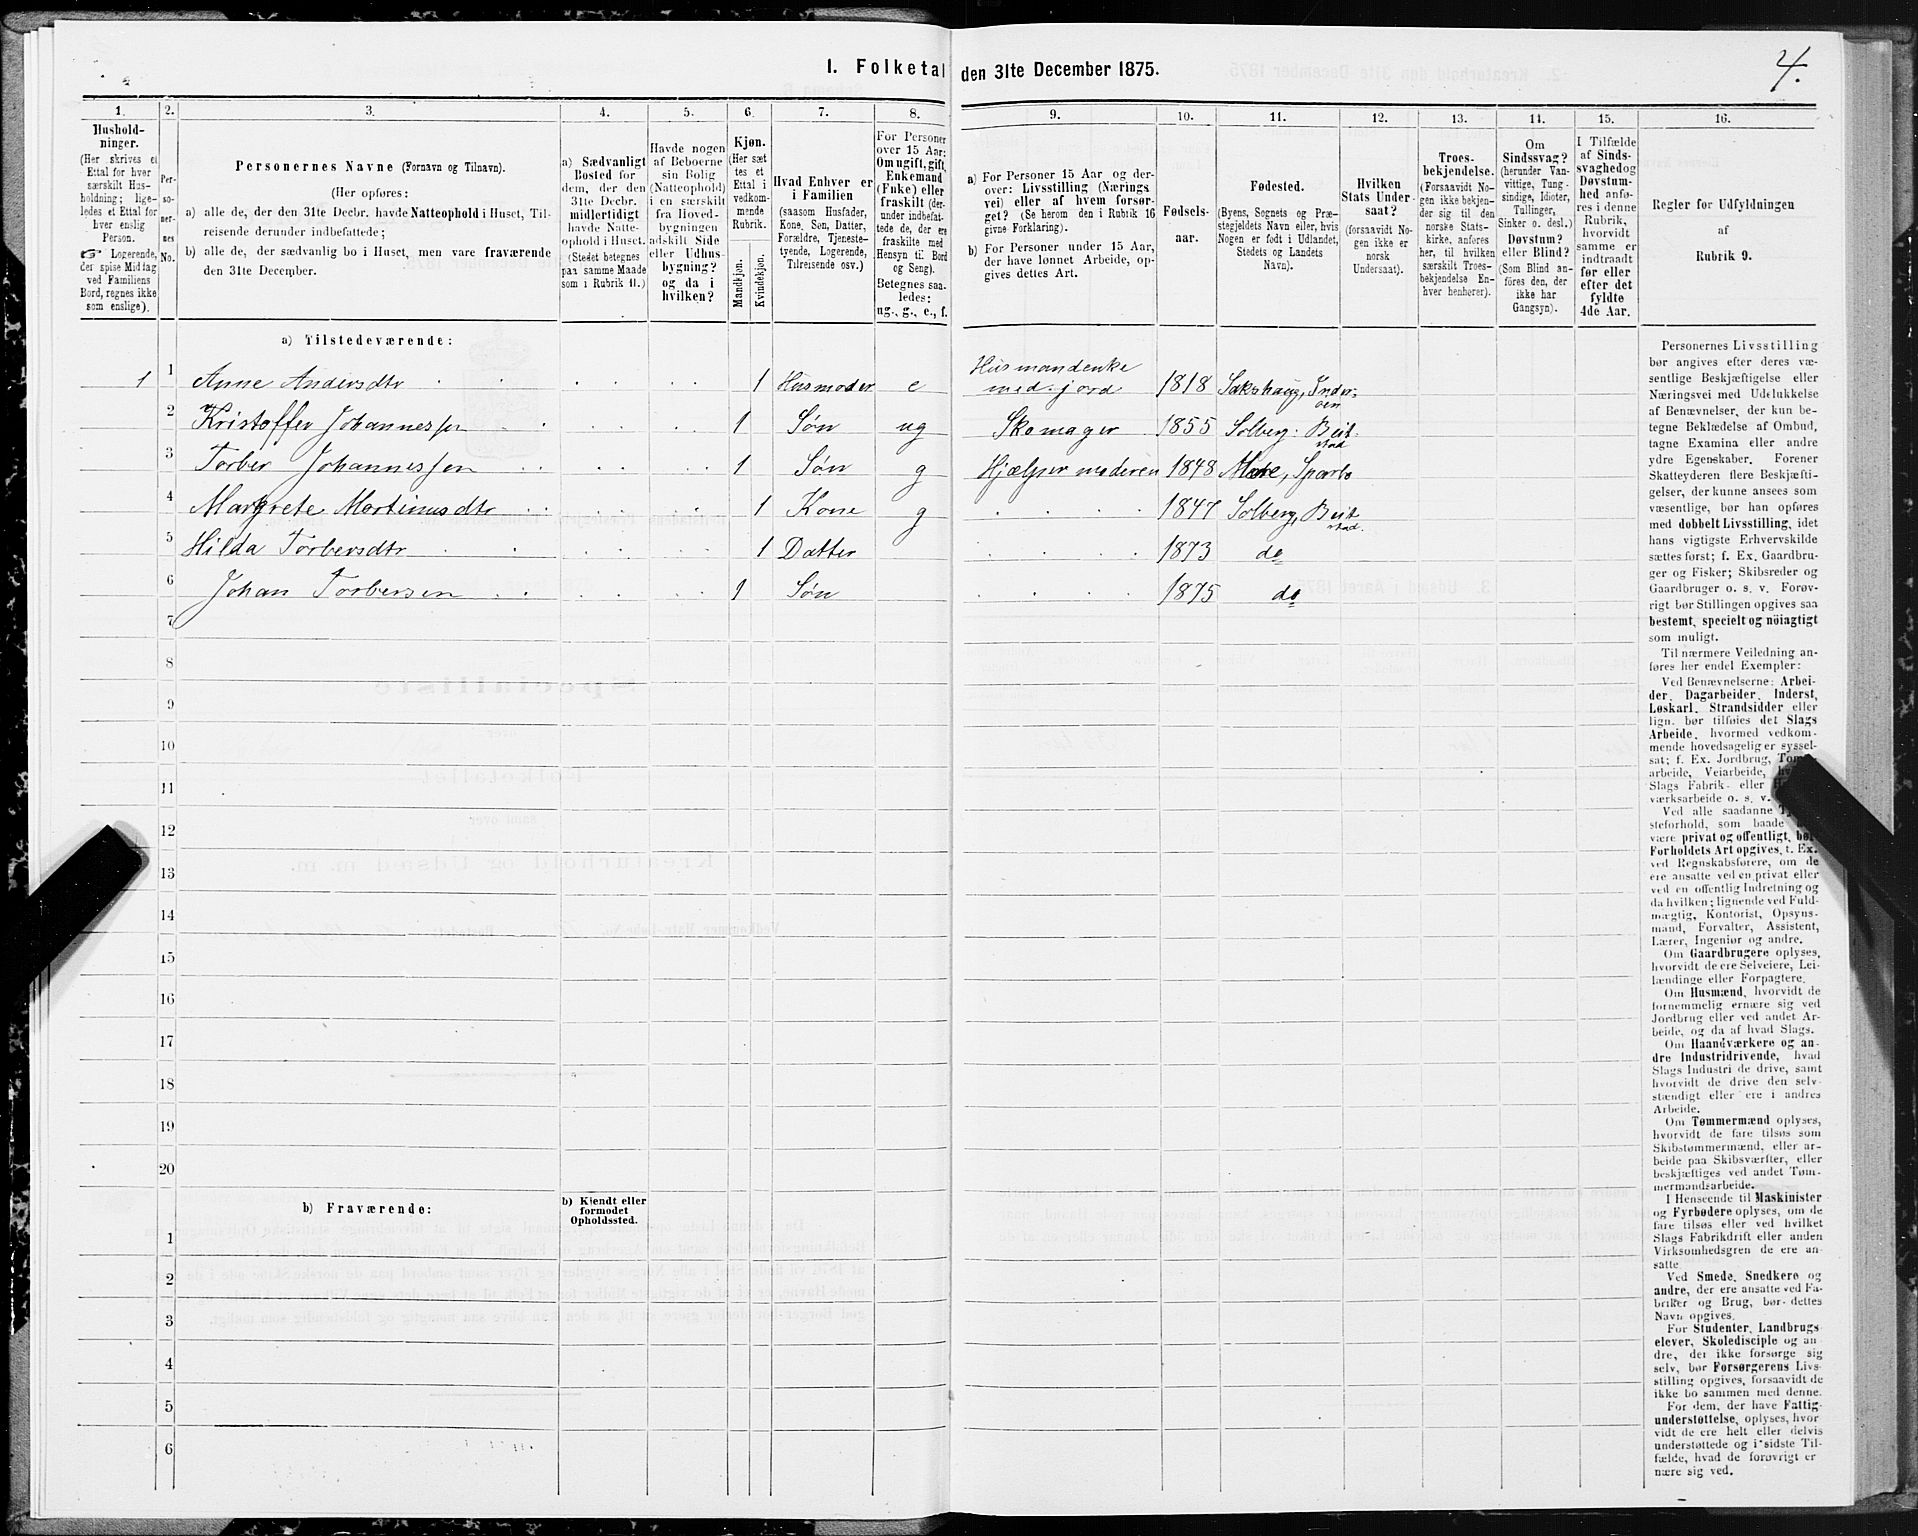 4.
I. Folketal den 31te December 1875.
1. 2. 3. 4. 5. 6. 7. 8. 9. 10. 11. 12. 13. 14. 15. 16.
Hushold-
ninger.
(Her skrives et
Ettal for hver
særskilt Hus-
holdning; lige-
ledes et Ettal for
hver enslig
Person.
☞ Logerende,
der spise Middag
ved Familiens
Bord, regnes ikke
som enslige).
Per-
so-
ner-
nes
No.
Personernes Navne (Fornavn og Tilnavn).
(Her opføres:
a) alle de, der den 31te Decbr. havde Natteophold i Huset, Til-
reisende derunder indbefattede;
b) alle de, der sædvanlig bo i Huset, men vare fraværende
den 31te December.
a) Sædvanligt
Bosted for
dem, der den
31te Decbr.
midlertidigt
havde Natte-
ophold i Huset.
(Stedet betegnes
paa samme Maade
som i Rubrik 11.)
Havde nogen
af Beboerne
sin Bolig
(Natteophold)
i en særskilt
fra Hoved-
bygningen
adskilt Side-
eller Udhus-
bygning?
og da i
hvilken?
Kjøn.
(Her sæt-
tes et
Ettal i
vedkom-
mende
Rubrik.
Mandkjøn.
Kvindekjøn.
Hvad Enhver er
i Familien
(saasom Husfader,
Kone, Søn, Datter,
Forældre, Tjeneste-
tyende, Logerende,
Tilreisende osv.)
For Personer
over 15 Aar:
Om ugift, gift,
Enkemand
(Enke) eller
fraskilt (der-
under indbefat-
tede de, der ere
fraskilte med
Hensyn til Bord
og Seng).
Betegnes saa-
ledes:
ug., g., e., f.
a) For Personer 15 Aar og der-
over: Livsstilling (Nærings-
vei) eller af hvem forsør-
get? (Se herom den i Rubrik 16
givne Forklaring).
b) For Personer under 15 Aar,
der have lønnet Arbeide, op-
gives dettes Art.
Fødsels-
aar.
Fødested.
(Byens, Sognets og Præ-
stegjeldets Navn eller, hvis
Nogen er født i Udlandet,
Stedets og Landets
Navn).
Hvilken
Stats Under-
saat?
(forsaavidt No-
gen ikke er
norsk
Undersaat).
Troes-
bekjendelse.
(Forsaavidt No-
gen ikke bekjen-
der sig til den
norske Stats-
kirke, anføres
her, til hvilken
særskilt Troes-
bekjendelse En-
hver henhører).
Om
Sindssvag?
(herunder Van-
vittige, Tung-
sindige, Idioter,
Tullinger,
Sinker o. desl.)
Døvstum?
eller Blind?
(Som Blind an-
føres den, der
ikke har
Gangsyn).
I Tilfælde
af Sinds-
svaghed og
Døvstum-
hed anfø-
res i denne
Rubrik,
hvorvidt
samme er
indtraadt
før eller
efter det
fyldte
4de Aar.
Regler for Udfyldningen
af
Rubrik 9.
a) Tilstedeværende:
1 1 Anne Andersdtr 1 Husmoder e Husmandenke
med jord 1818 Sakshaug, Inder-
øen
2 Kristoffer Johannessen 1 Søn ug Skomager 1855 Solberg: Beit-
stad
3 Torber Johannessen 1 Søn g Hjælper moderen 1848 Mære, Sparbo
4 Margrete Martinusdtr 1 Kone g 1847 Solberg, Beit
stad.
5 Hilda Torbersdtr 1 Datter 1873 do
6 Johan Torbersen 1 Søn 1875 do
7
8
9
10
11
12
13
14
15
16
17
18
19
20
b) Fraværende:
b) Kjendt eller
formodet
Opholdssted.
1
2
3
4
5
6
Personernes Livsstilling
bør angives efter deres væ-
sentlige Beskjæftigelse eller
Næringsvei med Udelukkelse
af Benævnelser, der kun be-
tegne Beklædelse af Ombud,
tagne Examina eller andre
ydre Egenskaber. Forener
Skatteyderen flere Beskjæfti-
gelser, der kunne ansees som
væsentlige, bør han opføres
med dobbelt Livsstilling, idet
hans vigtigste Erhvervskilde
sættes først; f. Ex. Gaardbru-
ger og Fisker; Skibsreder og
Gaardbruger o. s. v. Forøv-
rigt bør Stillingen opgives saa
bestemt, specielt og nöiagtigt
som muligt.
Til nærmere Veiledning an-
føres her endel Exempler:
Ved Benævnelserne: Arbei-
der, Dagarbeider, Inderst,
Løskarl, Strandsidder eller
lign. bør tilføies det Slags
Arbeide, hvormed vedkom-
mende hovedsagelig er syssel-
sat; f. Ex. Jordbrug, Tøm-
arbeide, Veiarbeide,
Slags Fabrik- eller
værksarbeide o. s. v.
Ved alle saadanne
steforhold, som baade
være privat og offentligt, bør
Forholdets Art opgives, f. Ex.
ved Regnskabsførere, om de
ere ansatte ved en privat eller
ved en offentlig Indretning og
da hvilken; lignende ved Fuld-
mægtig, Kontorist, Opsyns-
mand, Forvalter, Assistent,
Lærer, Ingeniør og andre.
Om Gaardbrugere oplyses,
hvorvidt de ere Selveiere, Lei-
lændinge eller Forpagtere.
Om Husmænd, hvorvidt de
fornemmelig ernære sig ved
Jordbrug eller ved andet Ar-
beide, og da af hvad Slags.
Om Haandværkere og an-
dre Industridrivende, hvad
Slags Industri de drive, samt
hvorvidt de drive den selv-
stændigt eller ere i andres
Arbeide.
Om Tømmermænd oplyses,
hvorvidt de fare tilsøs som
Skibstømmermænd, eller ar-
beide paa Skibsværfter, eller
beskjæftiges ved andet Tøm-
mermandsarbeide.
I Henseende til Maskinister
og Fyrbødere oplyses, om de
fare tilsøs eller ved hvilket
Slags Fabrikdrift eller anden
Virksomhedsgren de ere an-
satte.
Ved Smede, Snedkere og
andre, der ere ansatte ved Fa-
briker og Brug, bør dettes
Navn opgives.
For Studenter, Landbrugs-
elever, Skoledisciple og an-
dre, der ikke forsørge sig
selv, bør Forsørgerens Livs-
stilling opgives, forsaavidt de
ikke bo sammen med denne.
For dem, der have Fattig-
understøttelse, oplyses, hvor-
vidt de ere helt eller delvis
understøttede og i sidste Til-
fælde, hvad de forøvrigt er-
nære sig ved.